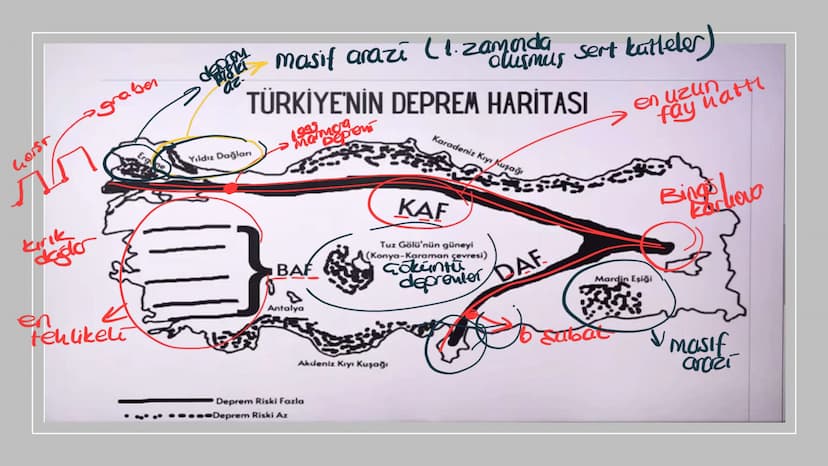 deprem
riski
az
masif arazi (1. zamanda
oluşmuş sert kütleler)
horst
graben
TÜRKİYE'NİN DEPREM HARİTASI
en uzun
fay hattı
1999
Marmara
Depremi
Ergene
Yıldız Dağları
Karadeniz Kıyı Kuşağı
KAF
Bingöl
Karlıova
kırık
dağlar
BAF
Tuz Gölü'nün güneyi
(Konya-Karaman çevresi)
Çöküntü
depremler
DAF
Mardin Eşiği
Antalya
en
tehlikeli
6 Şubat
masif
arazi
Akdeniz Kıyı Kuşağı
Deprem Riski Fazla
Deprem Riski Az